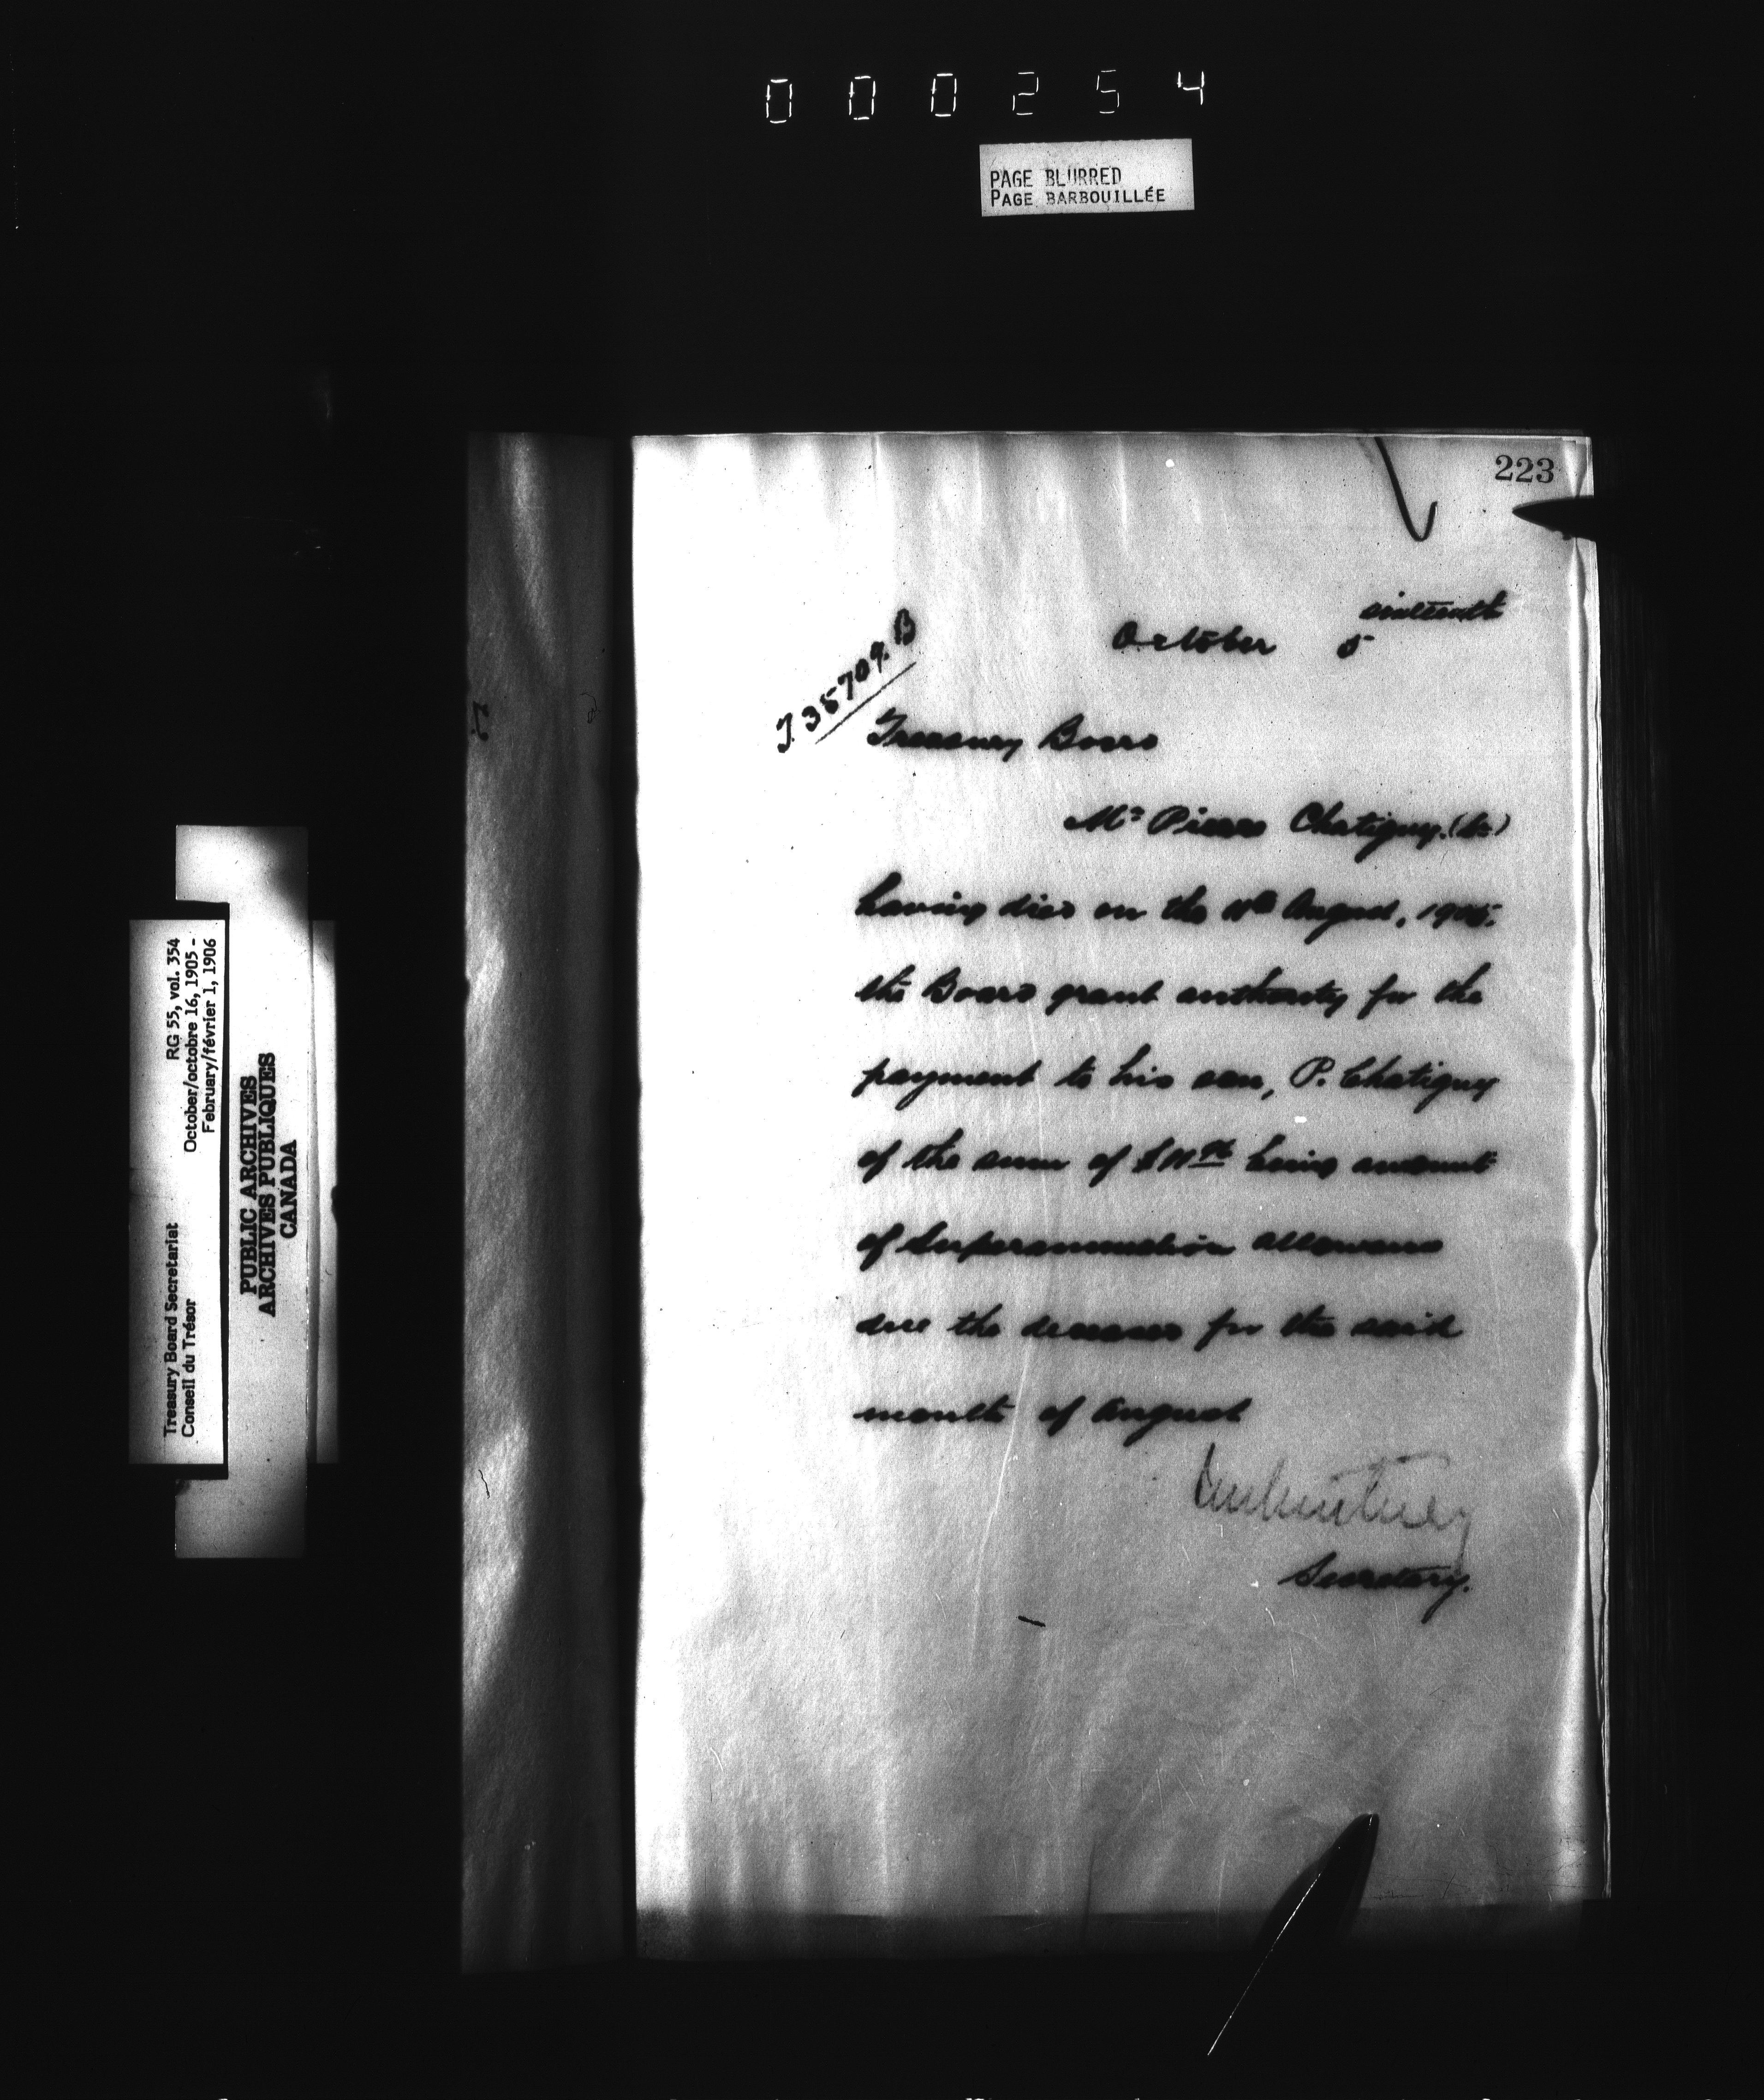 000254
PAGE BLURRED
PAGE BARBOUILLÉE
223
sixteenth
October 5
Treasury Board
Mr Pierre Chatigny.
having died on the August, 1905,
the Board grant authority for the
payment to his son, P. Chatigny
of the sum of being amount
of Superannuation allowance
due the deceased for the said
month of August
Secretary.
Treasury Board Secretariat RG 55, vol. 354
Conseil du Trésor October/octobre 16, 1905 -
February/février 1, 1906
PUBLIC ARCHIVES
ARCHIVES PUBLIQUES
CANADA